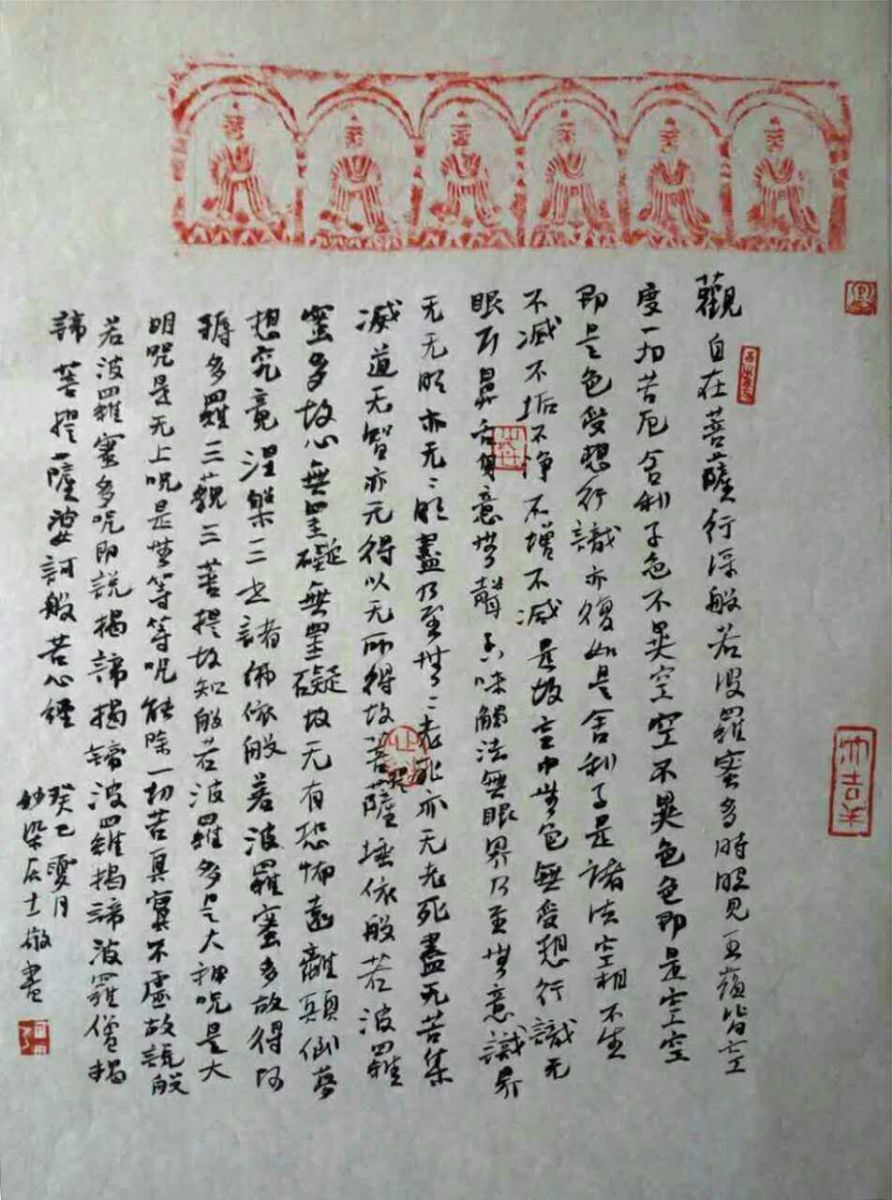 觀自在菩薩行深般若波羅蜜多時照見五蘊皆空
度一切苦厄舍利子色不異空空不異色色即是空空
即是色受想行識亦復如是舍利子是諸法空相不生
不滅不垢不净不增不减是故空中無色無受想行識无
眼耳鼻舌身意無聲香味觸法無眼界乃至無意識界
无无明亦无〻明盡乃至無〻老死亦无老死盡无苦集
滅道无智亦无得以无所得故菩薩埵依般若波羅
蜜多故心無罣礙無罣礙故无有恐怖遠離顛倒夢
想究竟涅槃三世諸佛依般若波羅蜜多故得阿
耨多羅三藐三菩提故知般若波羅多是大神呪是大
明呪是无上呪是無等等呪能除一切苦真實不虛故說般
若波羅蜜多呪即說揭諦揭諦波羅揭諦波羅僧揭
諦菩提薩婆訶般若心經
癸巳夏月
妙染居士敬書
大吉羊